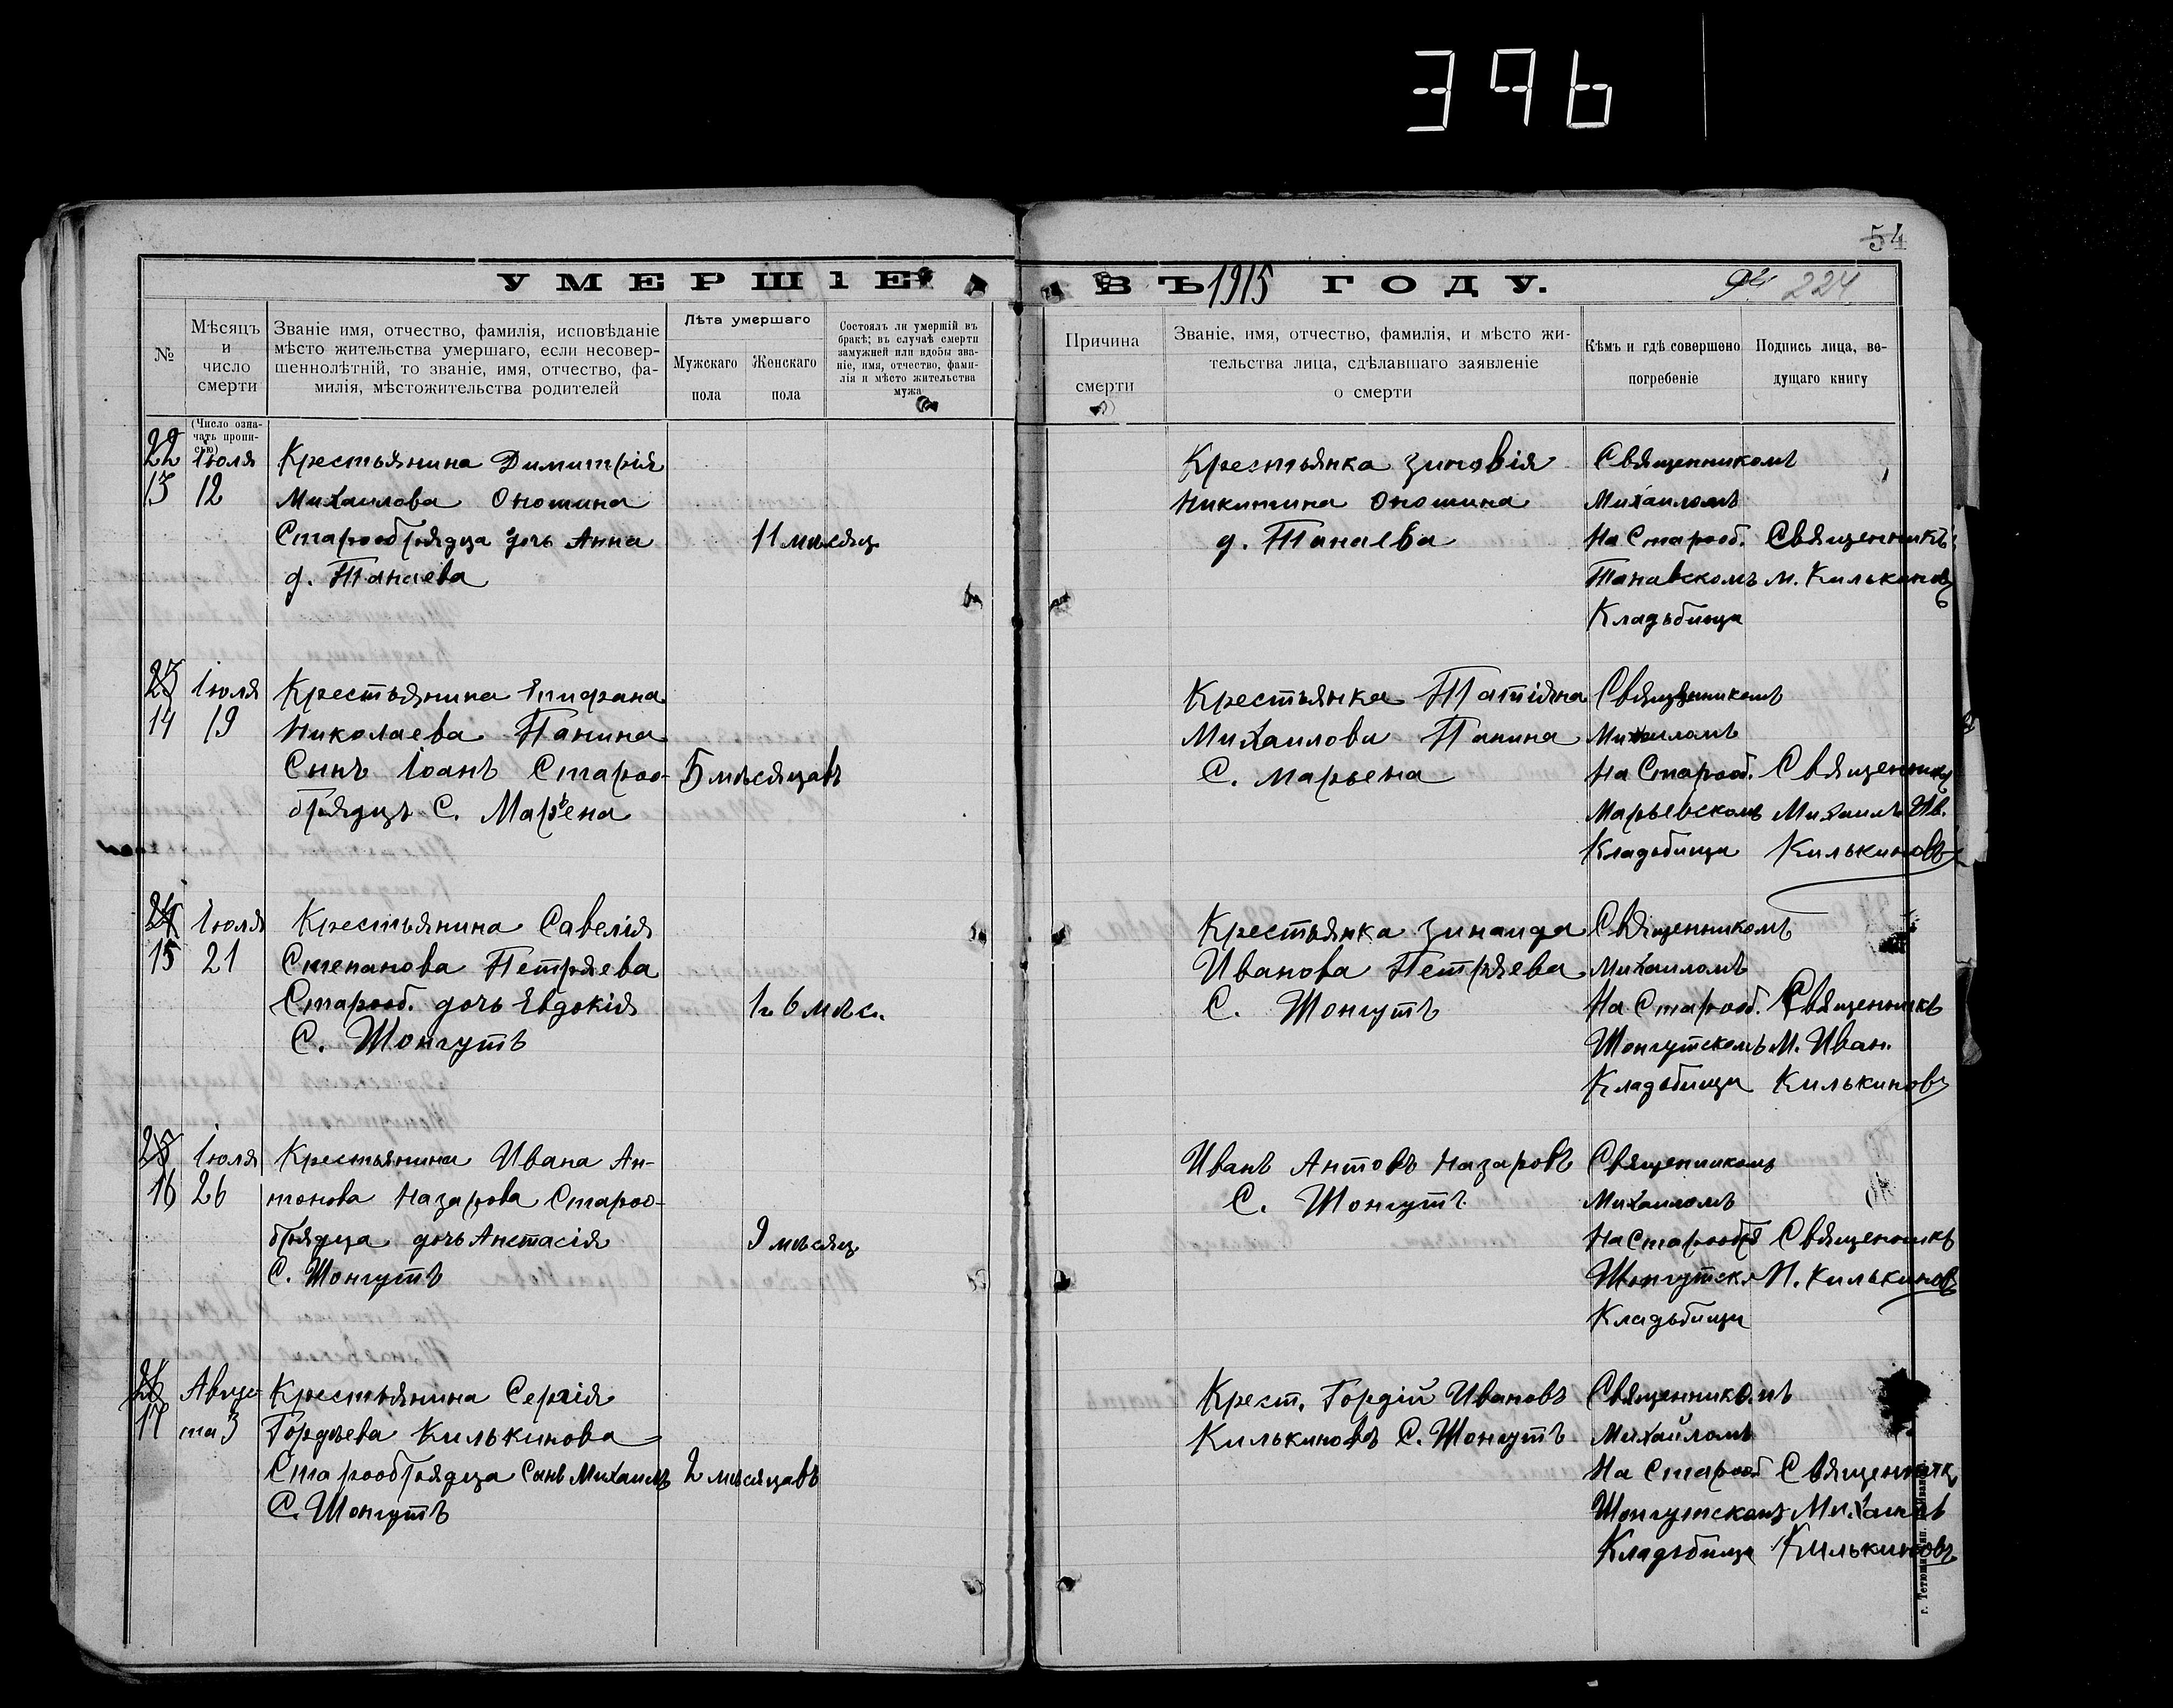 396
54
УМЕРШІЕ ВЪ 1915 ГОДУ.
94 224
№
Мѣсяцъ и число смерти
(Число означать прописью)
Званіе имя, отчество, фамилія, исповѣданіе
мѣсто жительства умершаго, если несовер-
шеннолѣтній, то званіе, имя, отчество, фа-
милія, мѣстожительства родителей
Лѣта умершаго
Мужскаго пола
Женскаго пола
Состоялъ ли умершій въ
бракѣ; въ случаѣ смерти
замужней или вдовы зва-
ніе, имя, отчество, фами-
лія и мѣсто жительства
мужа
Причина смерти
Званіе, имя, отчество, фамилія, и мѣсто жи-
тельства лица, сдѣлавшаго заявленіе
о смерти
Кѣмъ и гдѣ совершено
погребеніе
Подпись лица, ве-
дущаго книгу
22 Іюля
13 12
Крестьянина Димитрія
Михаилова Оношина
Старообрядца дочь Анна
д. Танаева
11 мѣсяц.
Крестьянка Зиновія
Никитина Оношина
д. Танаева
Священникомъ
Михаиломъ
На Старооб.
Танавскомъ
Кладьбища
Священникъ
М. Килькиновъ
23 Іюля
14 19
Крестьянина Епифана
Николаева Панина
Сынъ Іоанъ Староо-
брядцъ С. Марьена
5 мѣсяцовъ
Крестьянка Татіяна
Михаилови Панина
С. Марьена
Священникомъ
Михаиломъ
На Старооб.
Марьевскомъ
Кладьбища
Священникъ
Михаилъ Ив.
Килькиновъ
24 Іюля
15 21
Крестьянина Савелія
Степанова Петряева
Старооб. дочь Евдокія
С. Шонгутъ
1г. 6 мѣс.
Крестьянка Зинаида
Иванова Петряева
С. Шонгутъ
Священникомъ
Михаиломъ
На Старооб.
Шонгутскомъ
Кладьбищи
Священникъ
М. Иван.
Килькиновъ
25 Іюля
16 26
Крестьянина Ивана Ан-
тонова Назарова Староо-
брядца дочь Анстасія
С. Шонгутъ
9 мѣсяц
Иванъ Антовъ Назаровъ
С. Шонгутъ
Священникомъ
Михаиломъ
На Старообр
Шонгутск
Кладьбищи
Священникъ
М. Килькиновъ
26 Авгус-
17 та 3
Крестьянина Сергія
Гордѣева Килькинова
Старообрядца Сынъ Михаилъ
С. Шонгутъ
2 мѣсяцавъ
Крест. Гордій Ивановъ
Килькиновъ С. Шонгутъ
Священникомъ
Михайломъ
На Старооб
Шонгутскомъ
Кладьбища
Священникъ
Михаилъ
Килькиновъ